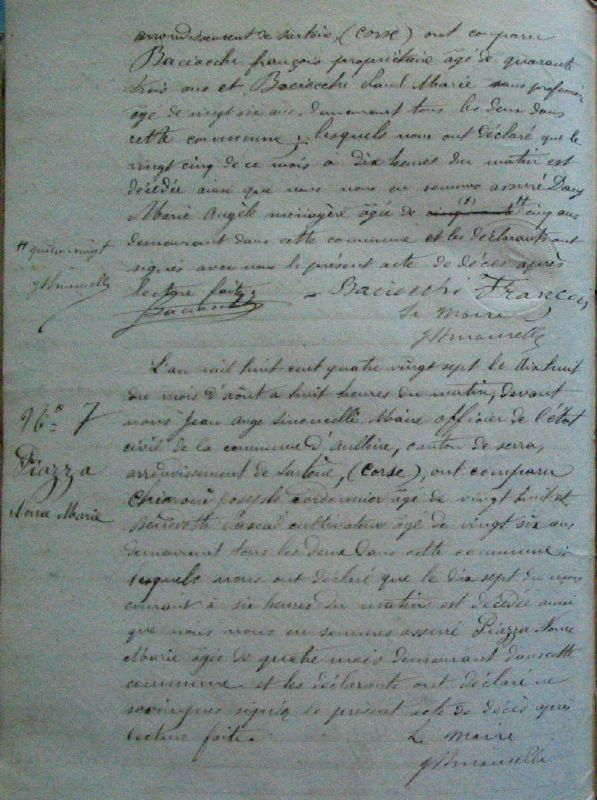 arrondissement de Sartène, (Corse) ont comparu
Baciocchi françois propriétaire âgé de quarante
trois ans et Baciocchi Marie sans profession
âgé de vingt six ans, demeurant tous les deux dans
cette commune, lesquels nous ont déclaré que le
vingt cinq de ce mois à dix heures du matin est
décédée ainsi que nous nous en sommes assuré
Marie Angèle ménagère âgée de cinq ans
demeurant dans cette commune et les déclarants ont
signés avec nous le présent acte de décès après
lecture faite.
Baciocchi François
Le Maire
quatre-vingt
L'an mil huit cent quatre vingt sept le dix huit
du mois d'août à huit heures du matin, devant
nous Jean Ange Maire officier de l'état
civil de la commune d'aullène, canton de serra,
arrondissement de Sartène, (Corse), ont comparu
Chiaroni Joseph cordonnier âgé de vingt huit et
Benedetti Pascal cultivateur âgé de vingt six ans
demeurant tous les deux dans cette commune
lesquels nous ont déclaré que le dix sept du mois
courant à six heures du matin est décédée ainsi
que nous nous en sommes assuré Piazza
Marie âgée de quatre mois demeurant dans cette
commune et les déclarants ont déclaré ne
le présent acte de décès après
lecture faite.
Le Maire
7
Piazza
Marie